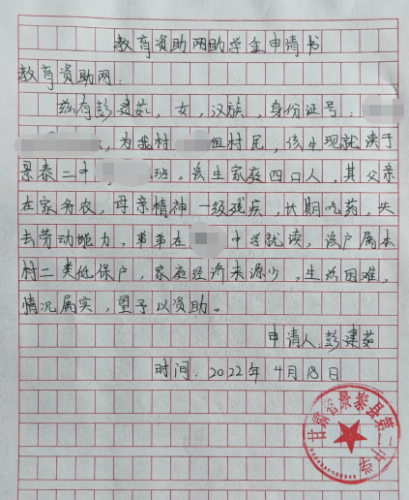 教育资助网助学金申请书
教育资助网:
兹有彭建茹，女，汉族，身份证号:
，为我村 组村民，该生现就读于
景泰二中 班，该生家庭四口人，其父亲
在家务农，母亲精神一级残疾，长期吃药，失
去劳动能力，弟弟在 中学就读，该户属本
村二类低保户，家庭经济来源少，生活困难，
情况属实，望予以资助。
申请人:彭建茹
时间:2022年4月18日
甘肃省景泰县第二中学